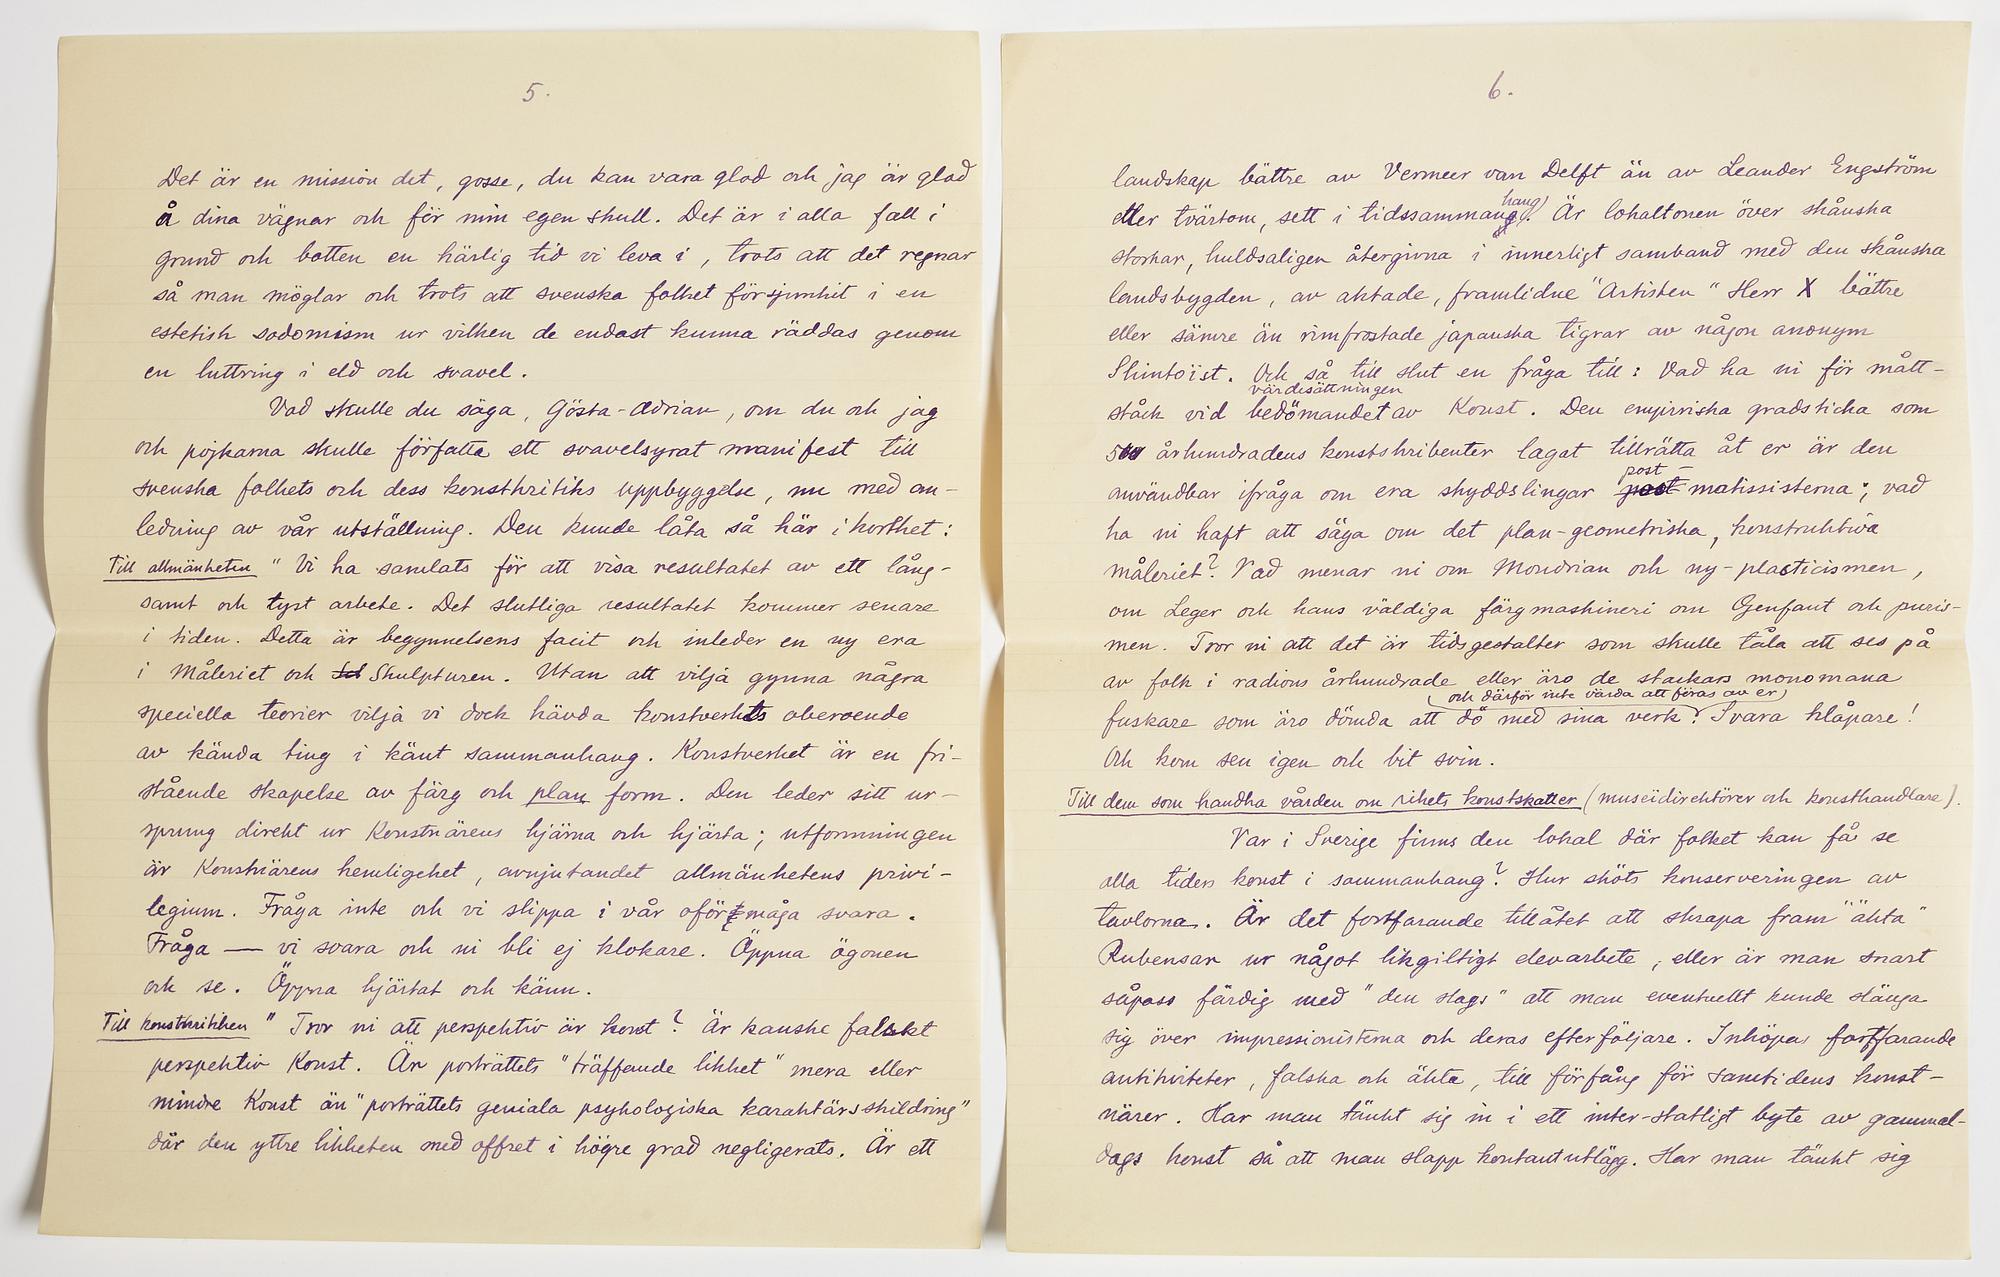 5.
Det är en mission det, gosse, du kan vara glad och jag är glad
å dina vägnar och för min egen skull. Det är i alla fall i
grund och botten en härlig tid vi leva i, trots att det regnar
så man möglar och trots att svenska folket försjunkit i en
estetisk sodomism ur vilken de endast kunna räddas genom
en luttring i eld och svavel.
Vad skulle du säga, Gösta-Adrian, om du och jag
och pojkarna skulle författa ett svavelsyrat manifest till
svenska folkets och dess konstkritiks uppbyggelse, nu med an-
ledning av vår utställning. Den kunde låta så här i korthet:
Till allmänheten " Vi ha samlats för att visa resultatet av ett lång-
samt och tyst arbete. Det slutliga resultatet kommer senare
i tiden. Detta är begynnelsens facit och inleder en ny era
i Måleriet och Skulpturen. Utan att vilja gynna några
speciella teorier vilja vi dock hävda konstverkets oberoende
av kända ting i känt sammanhang. Konstverket är en fri-
stående skapelse av färg och plan form. Den leder sitt ur-
sprung direkt ur Konstnärens hjärna och hjärta; utformningen
är Konstnärens hemlighet, avnjutandet allmänhetens privi-
legium. Fråga inte och vi slippa i vår oförmåga svara.
Fråga — vi svara och ni bli ej klokare. Öppna ögonen
och se. Öppna hjärtat och känn.
Till konstkritiken " Tror ni att perspektiv är konst? Är kanske falskt
perspektiv Konst. Är porträttets "träffande likhet" mera eller
mindre Konst än "porträttets geniala psykologiska karaktärsskildring"
där den yttre likheten med offret i högre grad negligerats. Är ett
6.
landskap bättre av Vermeer van Delft än av Leander Engström
hang)
eller tvärtom, sett i tidssammang. Är lokaltonen över skånska
storkar, huldsaligen återgivna i innerligt samband med den skånska
landsbygden, av aktade, framlidne "Artisten" Herr X bättre
eller sämre än rimfrostade japanska tigrar av någon anonym
Shintoïst. Och så till slut en fråga till: Vad ha ni för mått-
värdesättningen
stock vid bedömandet av Konst. Den empiriska gradsticka som
500 århundradens konstskribenter lagat tillrätta åt er är den
post-
användbar ifråga om era skyddslingar post matissisterna; vad
ha ni haft att säga om det plan-geometriska, konstruktiva
måleriet? Vad menar ni om Mondrian och ny-plasticismen,
om Leger och hans väldiga färgmaskineri om Genfant och puris-
men. Tror ni att det är tidsgestalter som skulle tåla att ses på
av folk i radions århundrade eller äro de stackars monomana
(och därför inte värda att föras av er)
fuskare som äro dömda att dö med sina verk? Svara klåpare!
Och kom sen igen och bit svin.
Till dem som handha vården om rikets konstskatter (museidirektörer och konsthandlare).
Var i Sverige finns den lokal där folket kan få se
alla tiders konst i sammanhang? Hur sköts konserveringen av
tavlorna. Är det fortfarande tillåtet att skrapa fram "äkta"
Rubensar ur något likgiltigt elevarbete, eller är man snart
såpass färdig med "den slags" att man eventuellt kunde slänga
sig över impressionisterna och deras efterföljare. Inköpas fortfarande
antikviteter, falska och äkta, till förfång för samtidens konst-
närer. Har man tänkt sig in i ett inter-statligt byte av gammal-
dags konst så att man slapp kontantutlägg. Har man tänkt sig